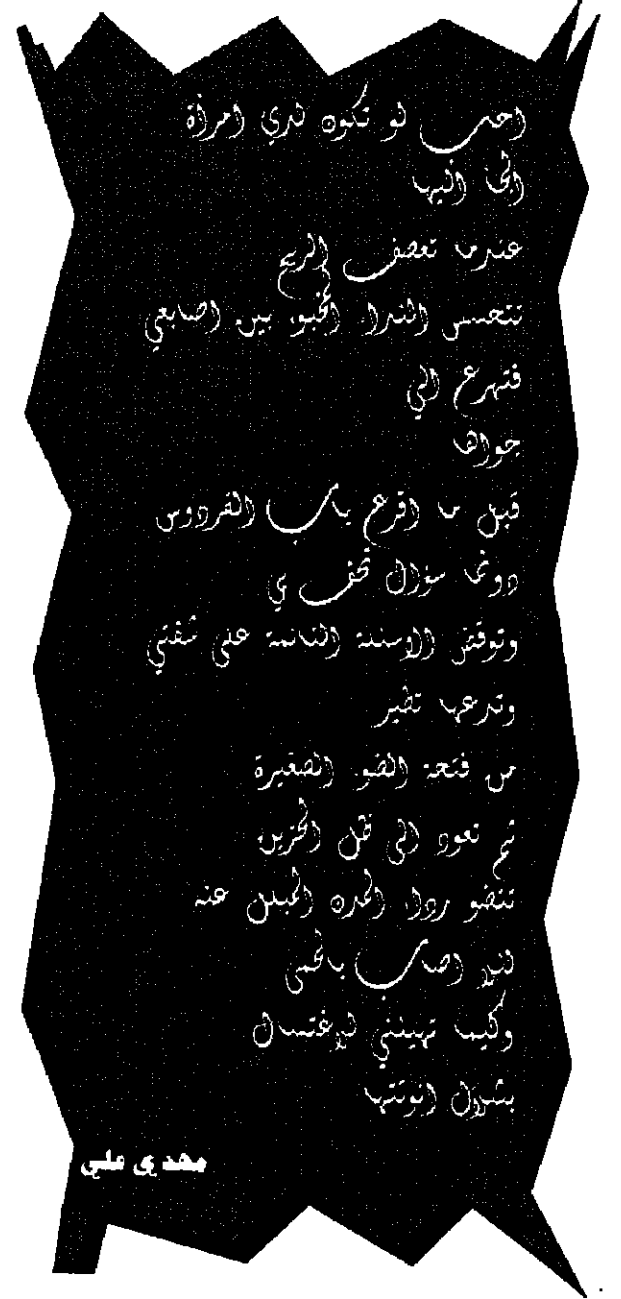 احب لو تكون لدي امرأة
الجأ اليها
عندما تعصف الريح
تتحسس النداء المخبوء بين اصابعي
فتهرع الي
جوادها
قبل ما اقرع باب الفردوس
دونما سؤال تحف بي
وتوقظ الاسئلة النائمة على شفتي
وتدعها تطير
من فتحة الضوء الصغيرة
ثم تعود الى ظل الحزين
تنضو رداء الحزن المبلل عنه
لئلا اصاب بالحمى
وكيما تهيئني لاغتسال
بشلال انوثتها
مهدي علي